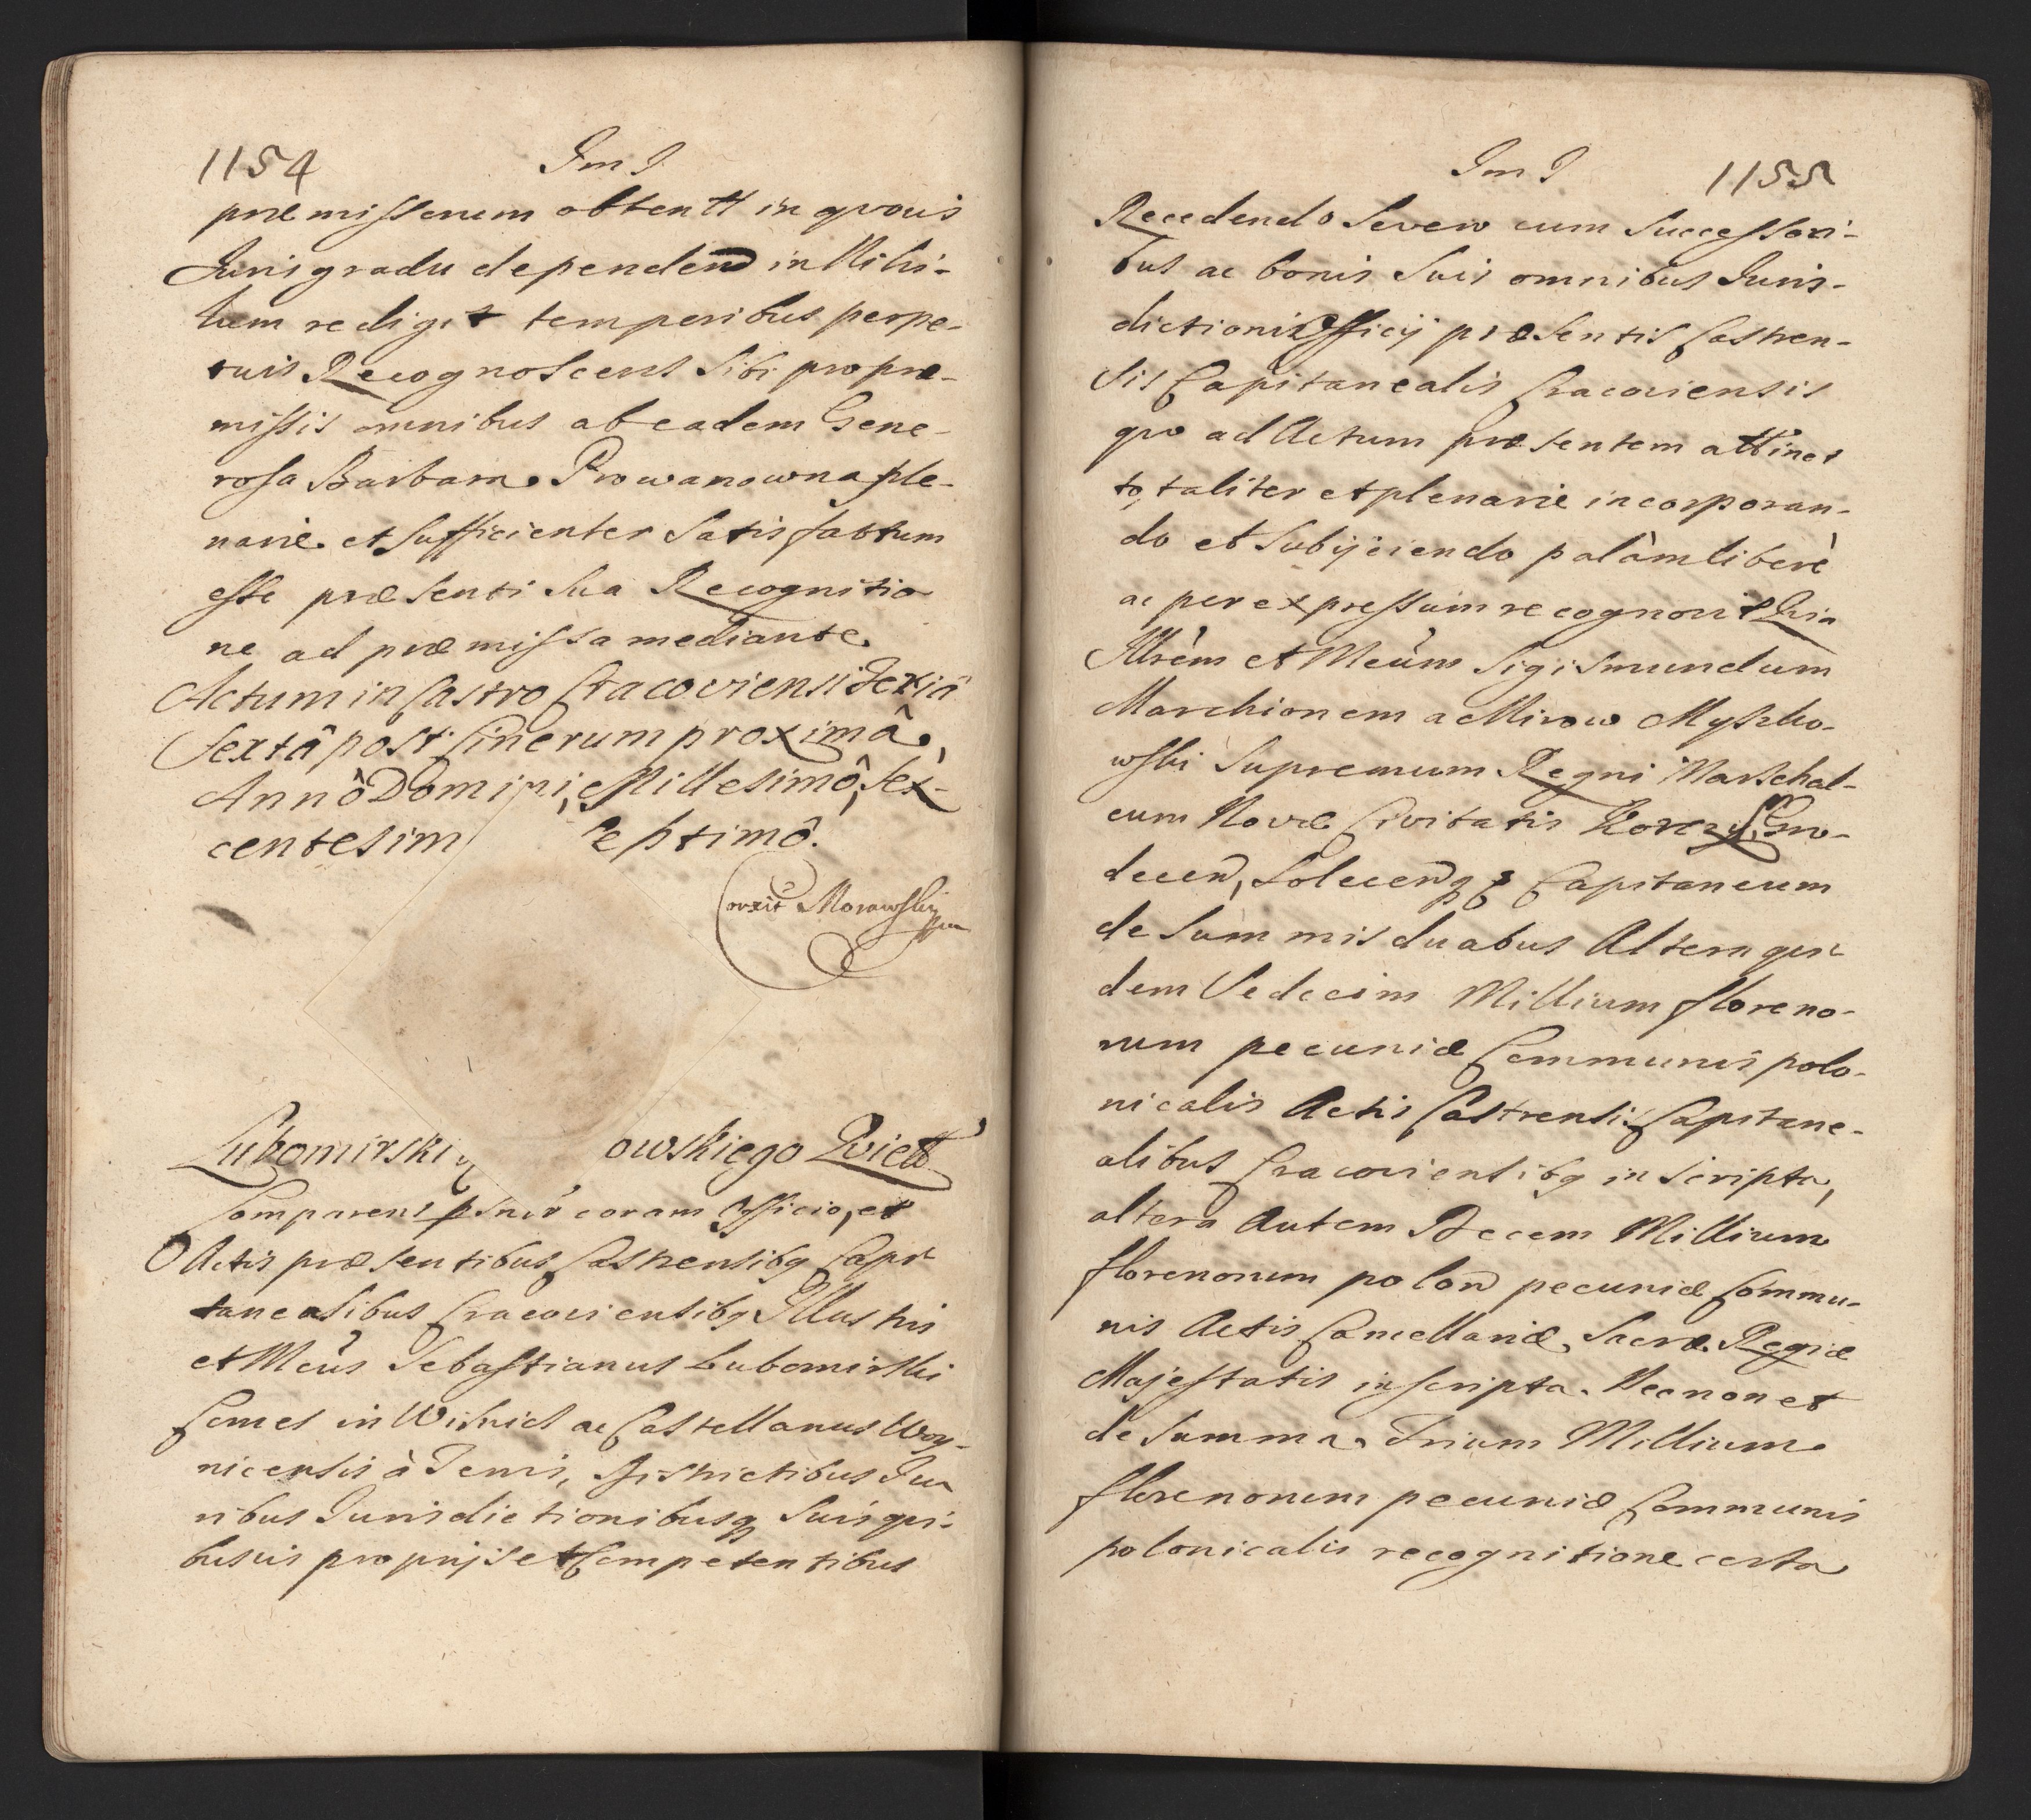 1154
Im J
præmissorum obtentt in qvovis
Juris gradu dependend in Nihi-
lum rediget temporibus perpe-
tuis Recognoscens sibi pro præ-
missis omnibus ab eadem Gene-
rosa Barbara Prowanowna ple-
narie et sufficienter Satisfactum
esse præsenti sua Recognitio
ne ad præmissa mediante
Actum in Castro Cracoviensi Feriâ
Sextâ post Cinerum proximâ,
Annô Domini, Millesimô, Sex-
centesim eptimô.
Corxit Morawski
Lubomirski owskiego Qviett
Comparens psnr coram Officio, et
Actis præsentibus Castrensibq Capi
tanealibus Cracoviensibq Illustris
et Mcus Sebastianus Lubomirski
Comes in Wisnicz ac Castellanus Woy-
nicensis à Terris, Districtibus Ju
ribus Jurisdictionibusq Suis qui-
busvis proprijs et Competentibus
Im J
1155
Recedendo Severo cum Successori-
bus ac bonis Suis omnibus Juris-
dictioni Officij præsentis Castren-
sis Capitanealis Cracoviensis
qvo ad Actum præsentem attinet
totaliter et plenarie incorporan-
do et Subijciendo palàm liberè
ac per expressum recognovit Quia
Illrèm et Mcum Sigismundum
Marchionem a Mirow Myszko-
wski Supremum Regni Marschal-
cum Novæ Civitatis Korczyn Gro-
decen, Solecenq Capitaneum
de Summis duabus Altera qvi
dem Sedecim Millium floreno-
rum pecuniæ Communis polo-
nicalis Actis Castrensib Capitane-
alibus Cracoviensibq inscripta,
altera Autem Decem Millium
florenorum polon pecuniæ Commu-
nis Actis Cancellariæ Sacræ Regiæ
Majestatis inscripta. Necnon et
de Summa Trium Millium
florenorum pecuniæ Communis
polonicalis recognitione certa